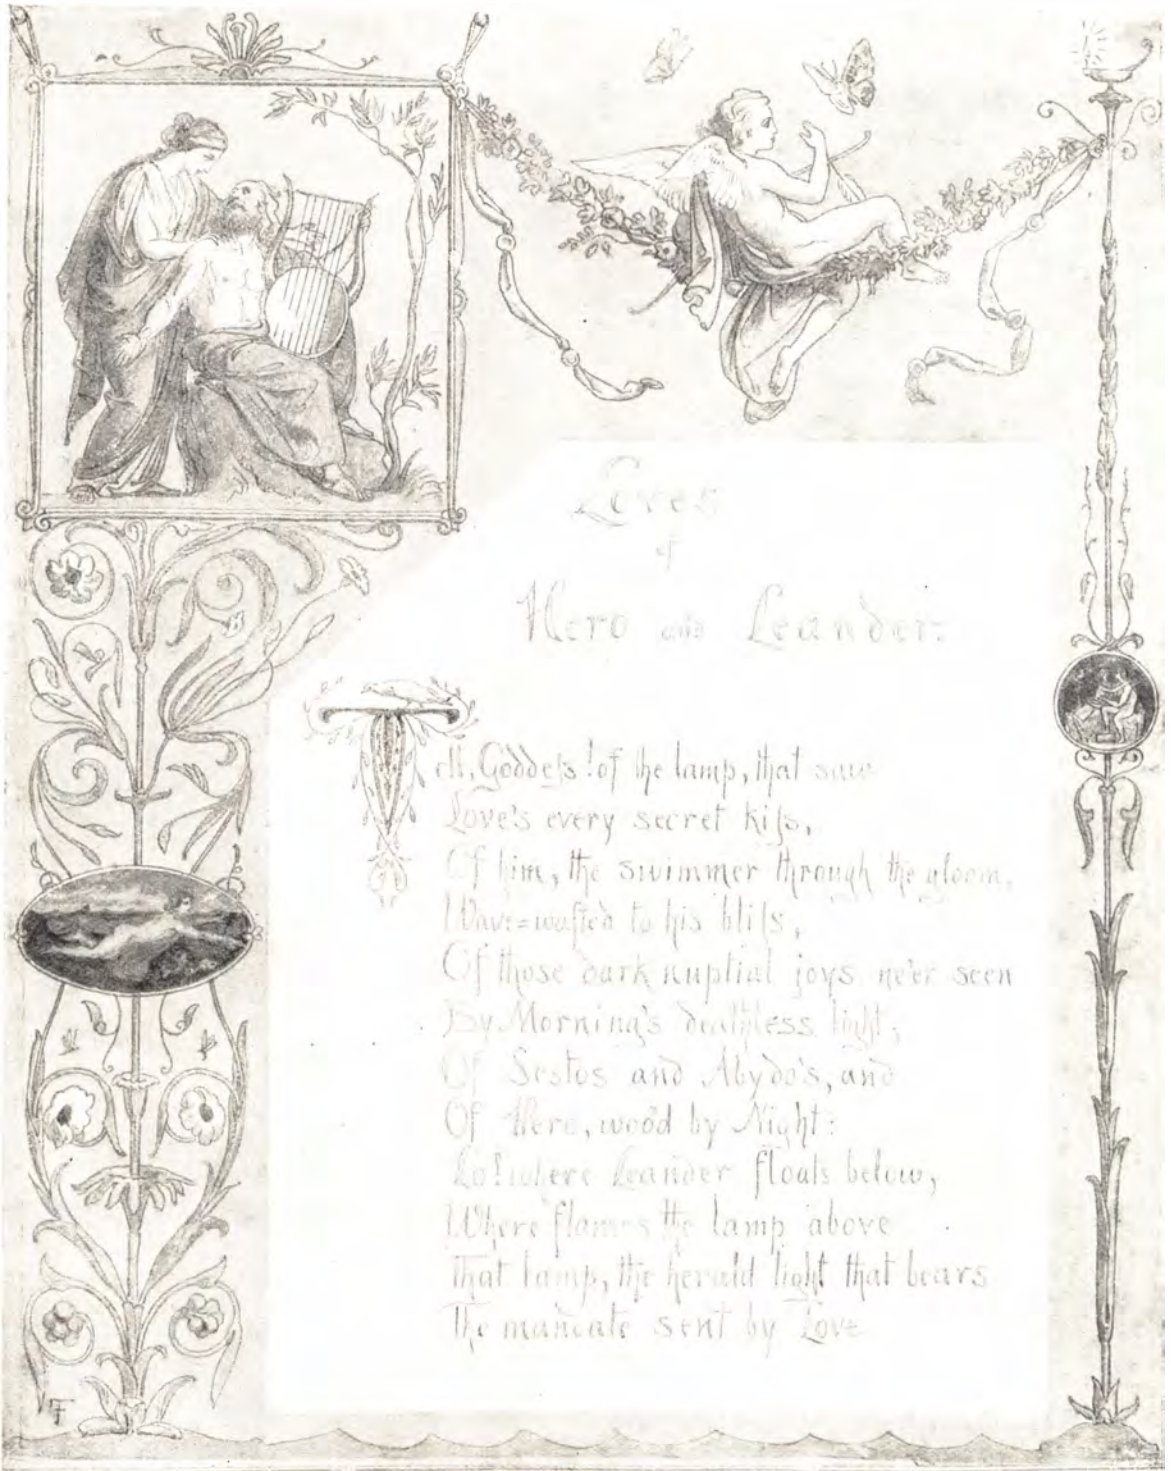 Loves
of
Hero and Leander.
Tell, Goddess! of the lamp, that saw
Love's every secret kiss,
Of him, the swimmer through the gloom,
Wave=wafted to his bliss,
Of those dark nuptial joys ne'er seen
By Morning's deathless light,
Of Sestos and Abydo's, and
Of Hero, woo'd by Night:
Lo! where Leander floats below,
Where flames the lamp above
That lamp, the herald light that bears
The mandate sent by Love